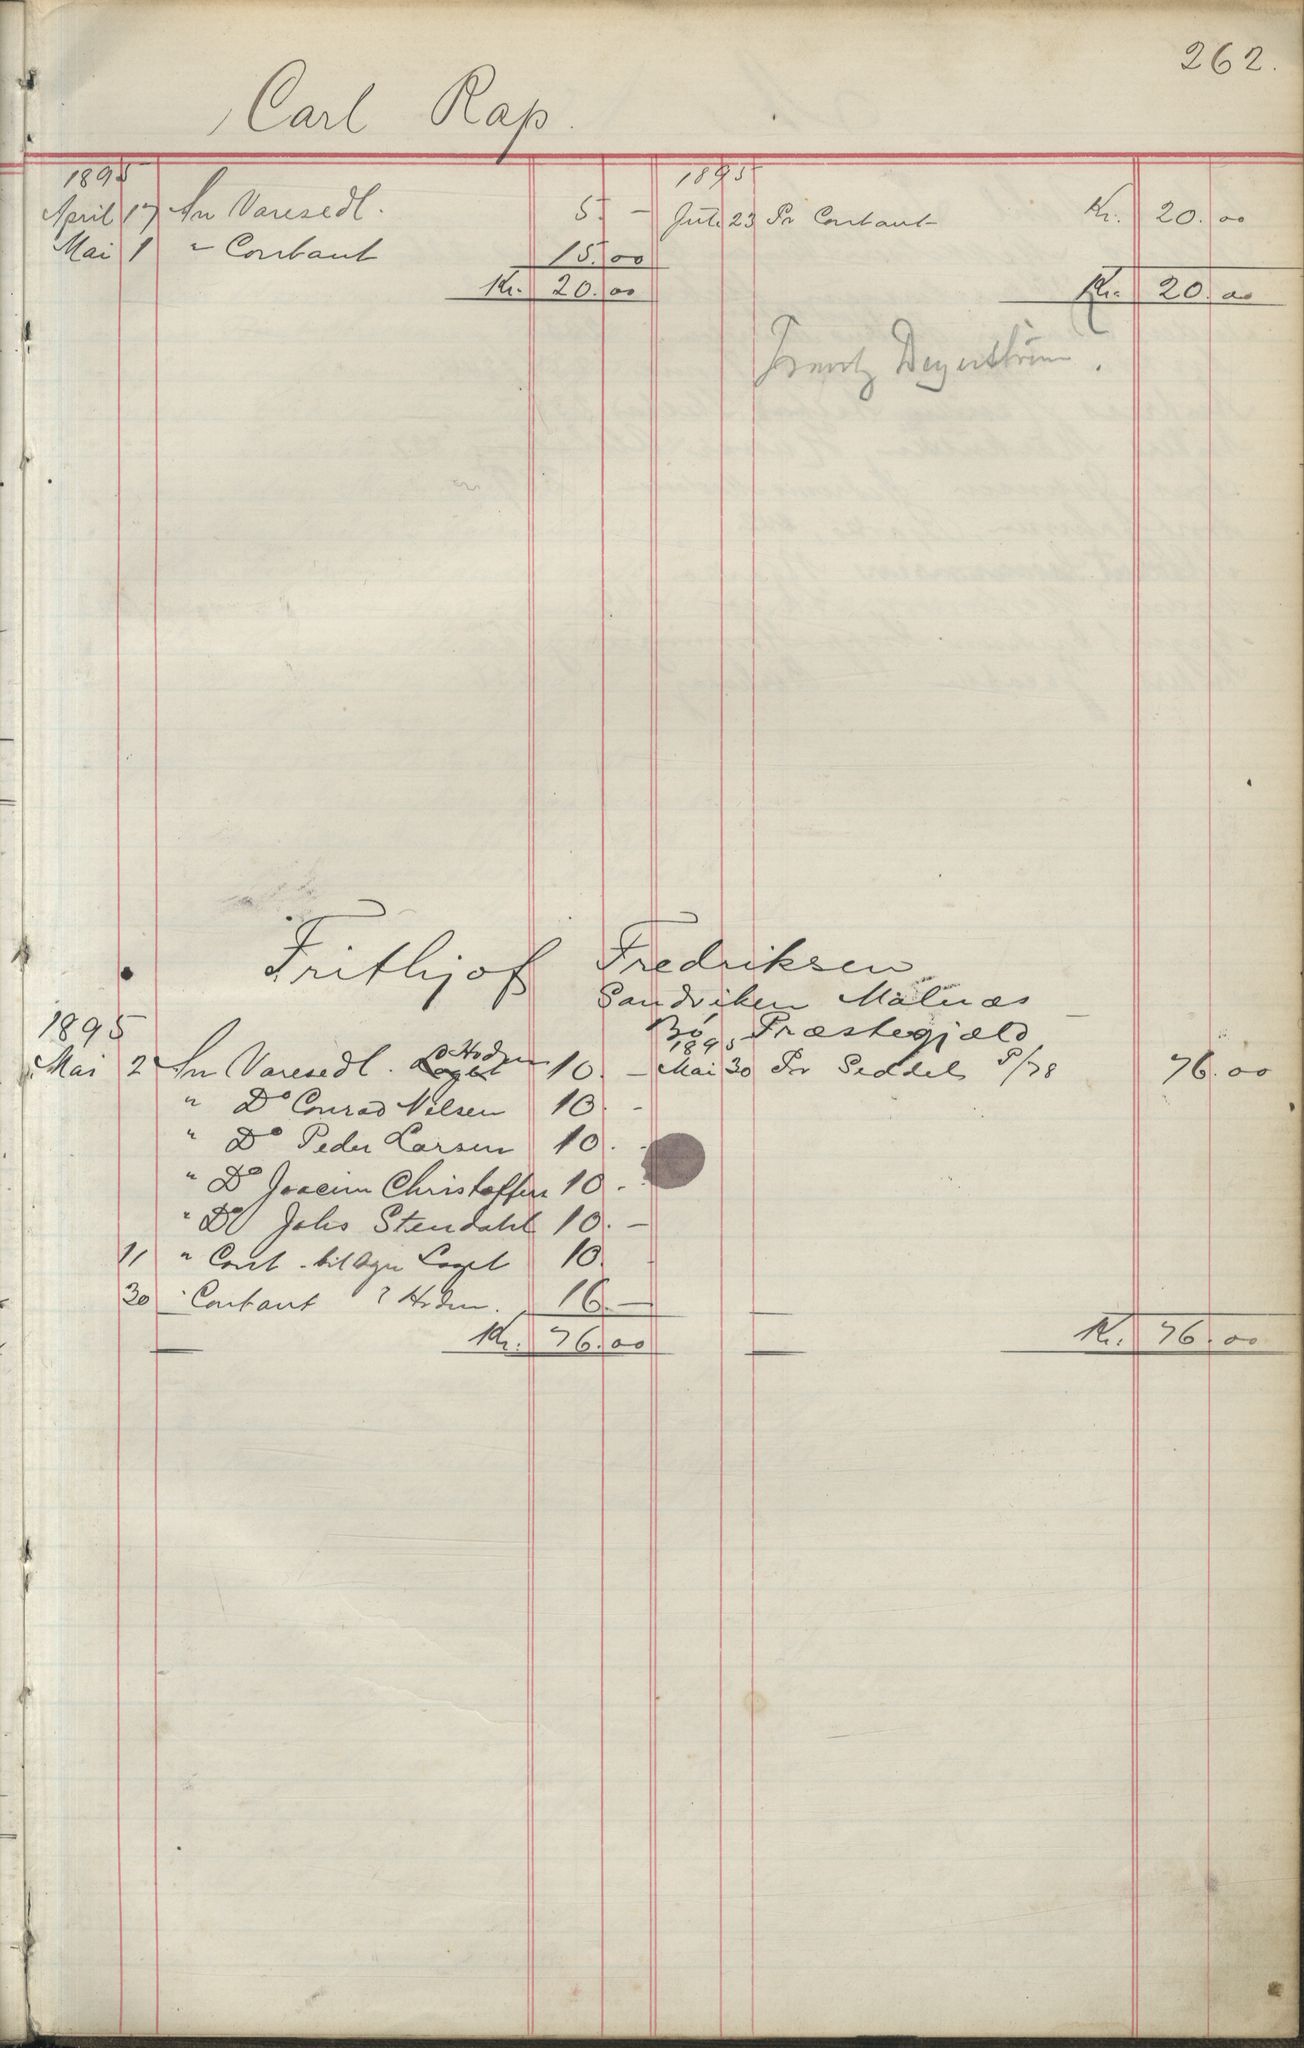 262.
Carl Rap.
1895 1895
April 17 An Varesedl. 5. — Juli 23 Pr Contant Kr. 20.00
Mai 1 " Contant 15.00
Kr. 20.00 Kr. 20.00
Frithjof Fredriksen
Sandviken Malnæs
Bø Præstegjæld
1895 1895
Mai 2 An Varesedl. 10. — Mai 30 Pr Seddel P/78 76.00
" Do Conrad Nilsen 10. -
" Do Peder Larsen 10. -
" Do Joacim Christoffersen 10. -
" Do Johs Stendahl 10. —
11 " Cont. til Agn Laget 10.
30 " Contant 16. —
Kr. 76.00 Kr. 76.00